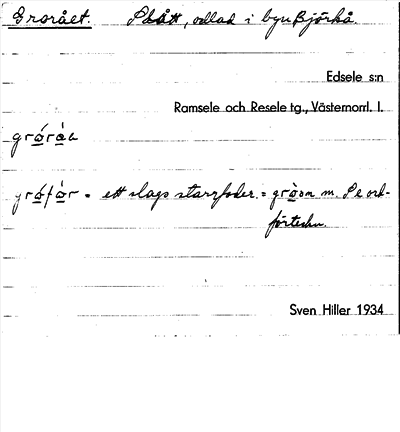 Grorået. Slått, odlad i byn Björkå.
Edsele s:n
Ramsele och Resele tg., Västernorrl. l.
gróràa
grófòr = ett slags starrfoder. = gròon m. Se ord-
förteckn.
Sven Hiller 1934